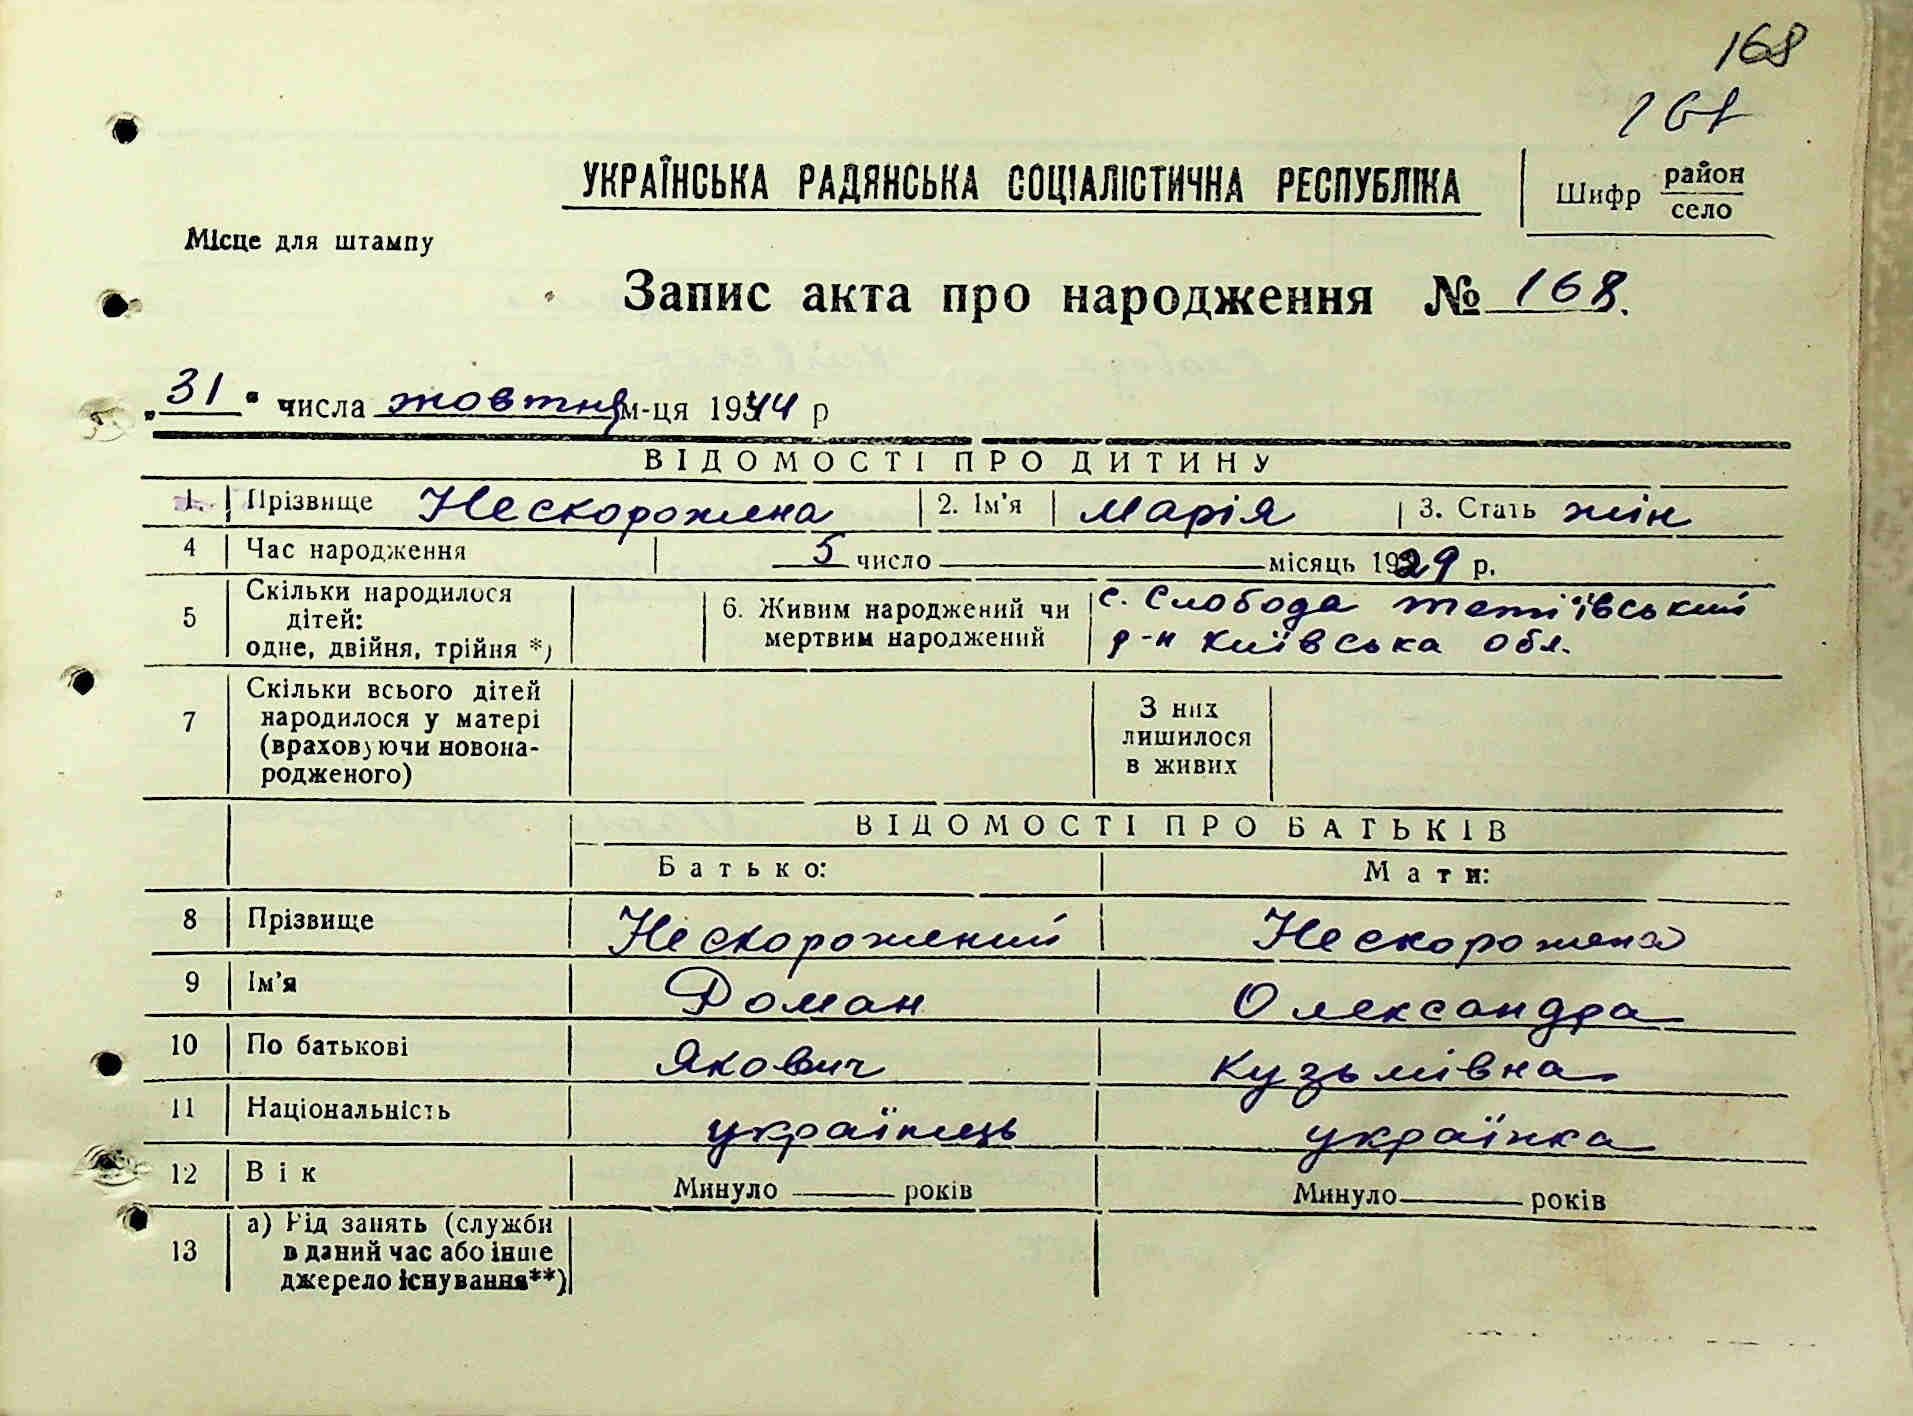 168
168
УКРАЇНСЬКА РАДЯНСЬКА СОЦІАЛІСТИЧНА РЕСПУБЛІКА
Шифр район
село
Місце для штампу
Запис акта про народження № 168.
„31" числа жовтня м-ця 1944 р
ВІДОМОСТІ ПРО ДИТИНУ
1. Прізвище Нескорожена 2. Ім'я Марія 3. Стать жін
4 Час народження 5 число місяць 1929 р.
5 Скільки народилося дітей: одне, двійня, трійня *)
6. Живим народжений чи мертвим народжений
с. Слобода тетіївський
р-н Київська обл.
7 Скільки всього дітей народилося у матері (враховуючи новонародженого)
З них лишилося в живих
ВІДОМОСТІ ПРО БАТЬКІВ
Батько: Мати:
8 Прізвище Нескорожений Нескорожена
9 Ім'я Роман Олександра
10 По батькові Якович Кузьмівна
11 Національність українець українка
12 Вік Минуло років Минуло років
13 а) Рід занять (служби в даний час або інше джерело існування**)